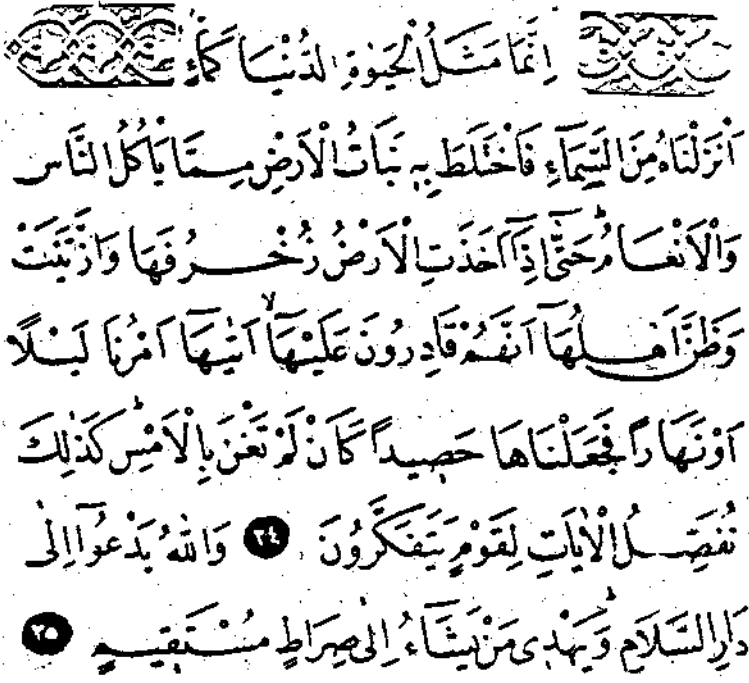 اِنَّمَا مَثَلُ الْحَيٰوةِ الدُّنْيَا كَمَٓاءٍ
اَنْزَلْنَاهُ مِنَ السَّمَٓاءِ فَاخْتَلَطَ بِهٖ نَبَاتُ الْاَرْضِ مِمَّا يَاْكُلُ النَّاسُ
وَالْاَنْعَامُۜ حَتّٰٓى اِذَٓا اَخَذَتِ الْاَرْضُ زُخْرُفَهَا وَازَّيَّنَتْ
وَظَنَّ اَهْلُهَٓا اَنَّهُمْ قَادِرُونَ عَلَيْهَٓاۙ اَتٰيهَٓا اَمْرُنَا لَيْلًا
اَوْ نَهَارًا فَجَعَلْنَاهَا حَصٖيدًا كَاَنْ لَمْ تَغْنَ بِالْاَمْسِۜ كَذٰلِكَ
نُفَصِّلُ الْاٰيَاتِ لِقَوْمٍ يَتَفَكَّرُونَ ٢٤ وَاللّٰهُ يَدْعُٓوا اِلٰى
دَارِ السَّلَامِۜ وَيَهْدٖى مَنْ يَشَٓاءُ اِلٰى صِرَاطٍ مُسْتَقٖيمٍ ٢٥